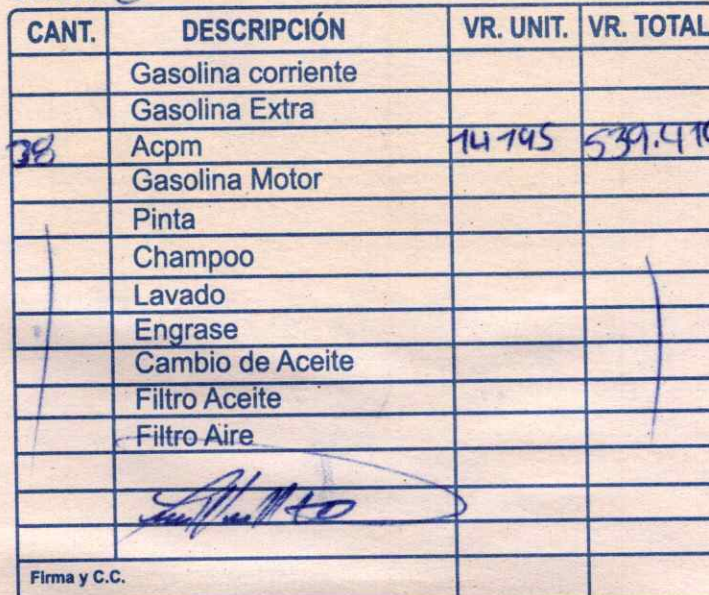 CANT. DESCRIPCIÓN VR. UNIT. VR. TOTAL
Gasolina corriente
Gasolina Extra
38 Acpm 14195 539.410
Gasolina Motor
Pinta
Champoo
Lavado
Engrase
Cambio de Aceite
Filtro Aceite
Filtro Aire
Firma y C.C.